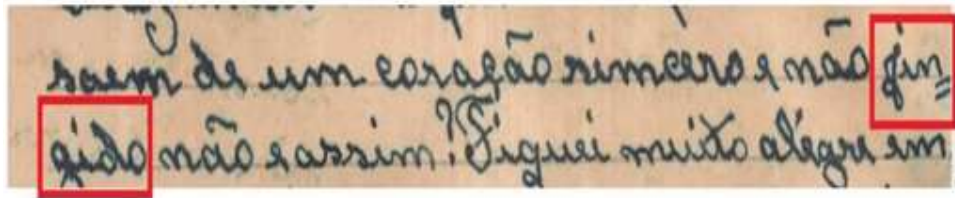 saem de um coração simcéro e não fin=
gido não e assim? Fiquei muito alégre em